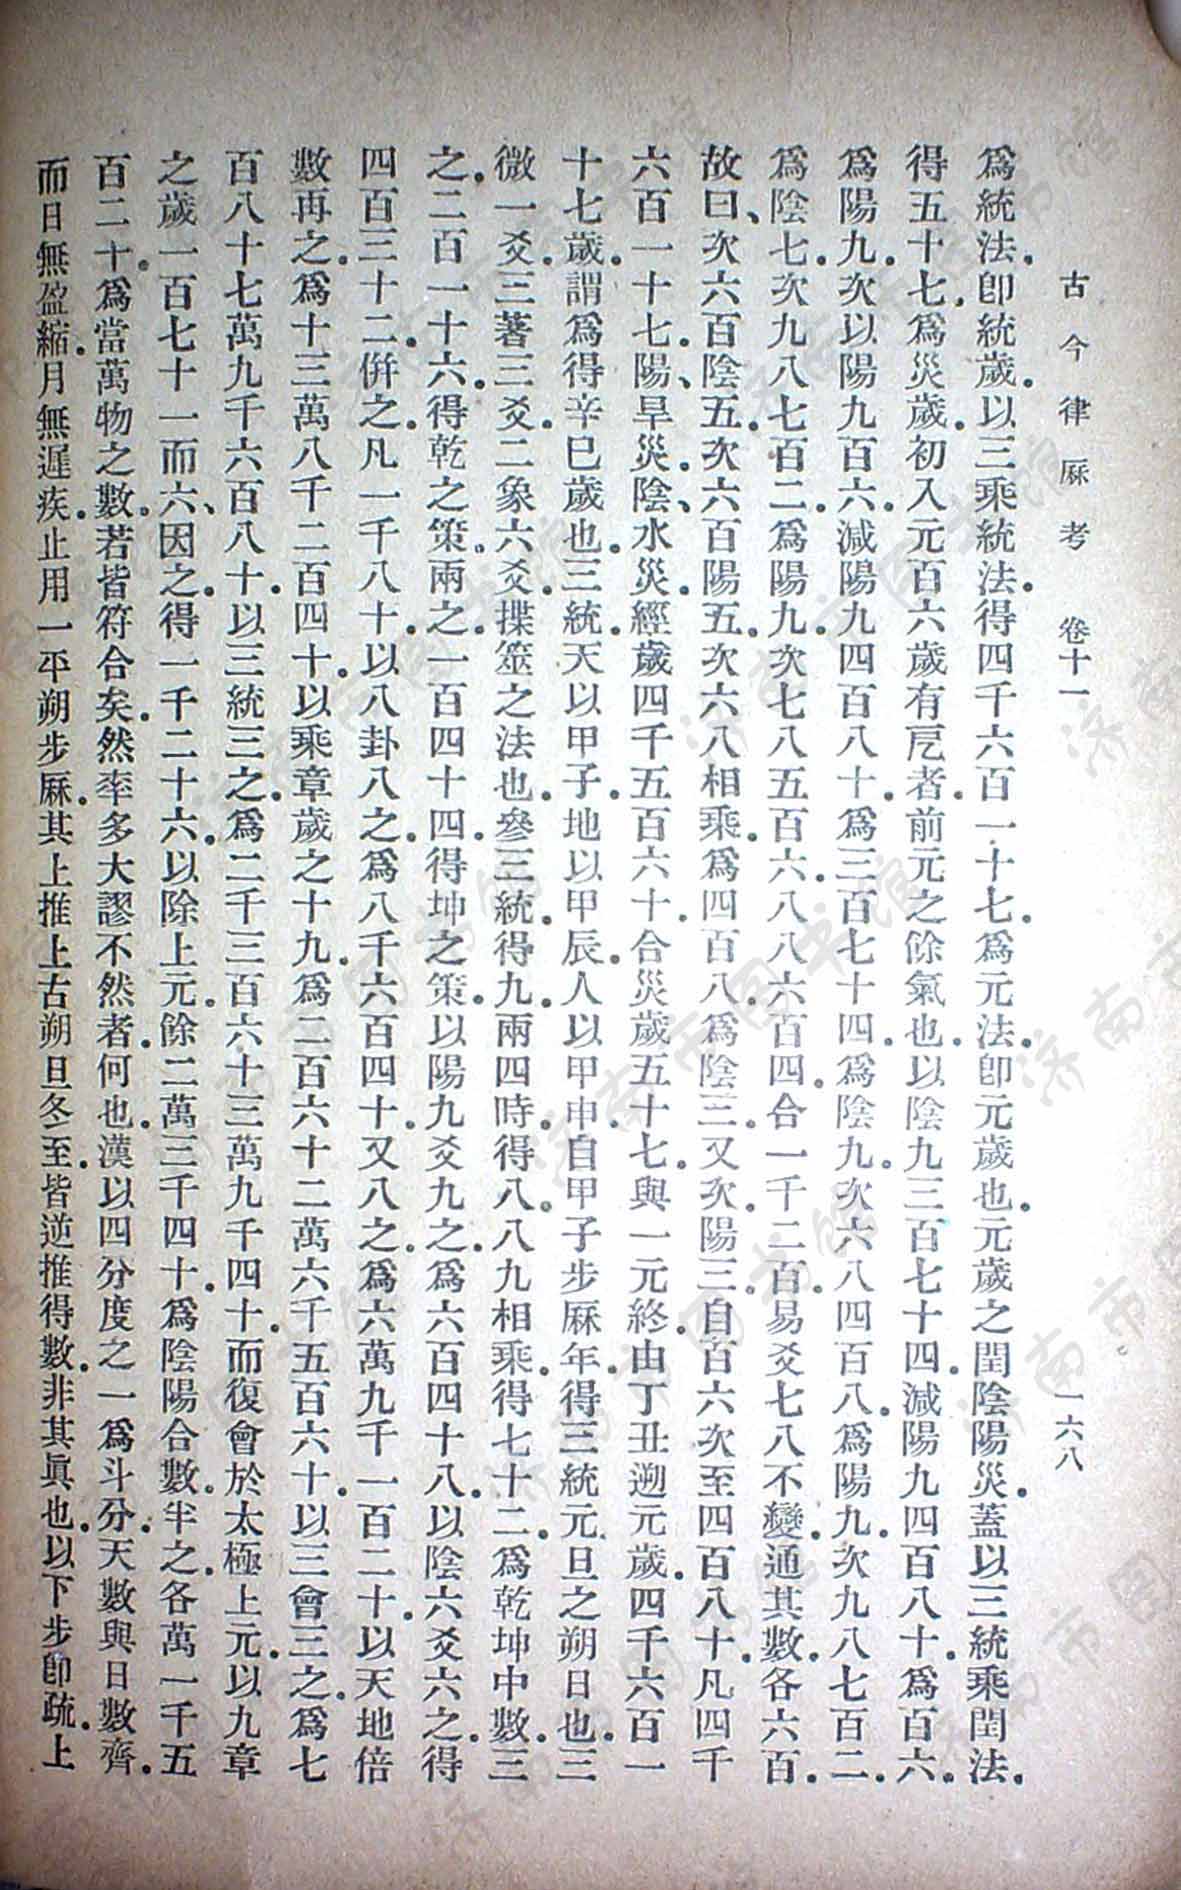 古今律厤考　卷十一　一六八
爲統法。卽統歲。以三乘統法。得四千六百一十七。爲元法。卽元歲也。元歲之閏陰陽災。蓋以三統乘閏法。
得五十七。爲災歲。初入元百六歲有戹者。前元之餘氣也。以陰九三百七十四。減陽九四百八十。爲百六。
爲陽九。次以陽九百六。減陽九四百八十。爲三百七十四。爲陰九。次六八四百八。爲陽九。次九八七百二。
爲陰七。次九八七百二。爲陽九。次七八五百六。八八六百四。合一千二百。易爻七八不變。通其數。各六百。
故曰、次六百陰五。次六百陽五。次六八相乘。爲四百八。爲陰三。又次陽三。自百六次至四百八十。凡四千
六百一十七。陽、旱災。陰、水災。經歲四千五百六十。合災歲五十七。與一元終。由丁丑遡元歲。四千六百一
十七歲。謂爲得辛巳歲也。三統。天以甲子。地以甲辰。人以甲申。自甲子步厤年。得三統元旦之朔日也。三
微一爻。三蓍三爻。二象六爻。揲筮之法也。參三統。得九。兩四時。得八。八九相乘。得七十二。爲乾坤中數。三
之。二百一十六。得乾之策。兩之。一百四十四。得坤之策。以陽九爻九之。爲六百四十八。以陰六爻六之。得
四百三十二。倂之。凡一千八十。以八卦八之。爲八千六百四十。又八之。爲六萬九千一百二十。以天地倍
數再之。爲十三萬八千二百四十。以乘章歲之十九。爲二百六十二萬六千五百六十。以三會三之。爲七
百八十七萬九千六百八十。以三統三之。爲二千三百六十三萬九千四十。而復會於太極上元。以九章
之歲一百七十一而六、因之。得一千二十六。以除上元。餘二萬三千四十。爲陰陽合數。半之。各萬一千五
百二十。爲當萬物之數。若皆符合矣。然率多大謬不然者。何也。漢以四分度之一爲斗分。天數與日數齊。
而日無盈縮。月無遲疾。止用一平朔步厤。其上推上古朔旦冬至。皆逆推得數。非其眞也。以下步卽疏。上